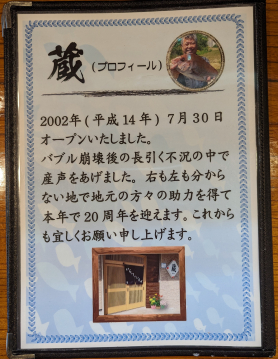 蔵 (プロフィール)
2002年(平成14年) 7月30日
オープンいたしました。
バブル崩壊後の長引く不況の中で
産声をあげました。右も左も分から
ない地で地元の方々の助力を得て
本年で20周年を迎えます。これから
も宜しくお願い申し上げます。
蔵